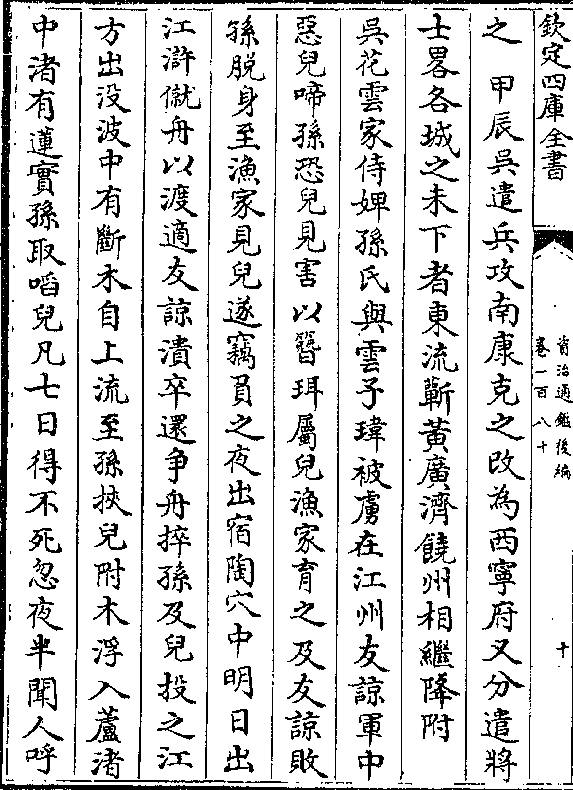 欽定四庫全書
資治通鑑後編
卷一百八十
十
之　甲辰吳遣兵攻南康克之改為西寧府又分遣將
士畧各城之未下者東流蘄黃廣濟饒州相繼降附
吳花雲家侍婢孫氏與雲子瑋被虜在江州友諒軍中
惡兒啼孫恐兒見害以簪珥屬兒漁家育之及友諒敗
孫脱身至漁家見兒遂竊負之夜出宿陶穴中明日出
江滸僦舟以渡適友諒潰卒還争舟捽孫及兒投之江
方出没波中有斷木自上流至孫挾兒附木浮入蘆渚
中渚有蓮實孫取啗兒凡七日得不死忽夜半聞人呼